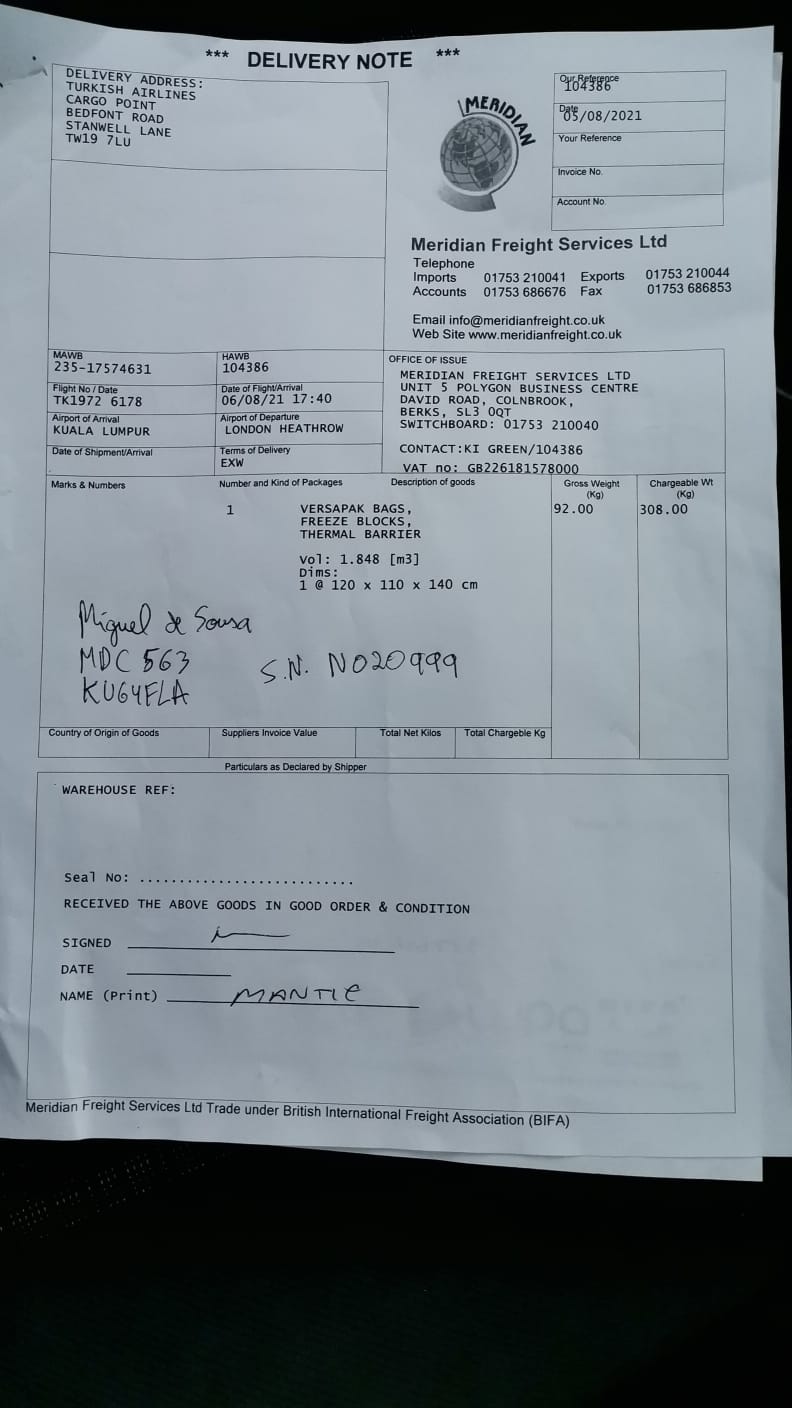 *** DELIVERY NOTE ***
DELIVERY ADDRESS:
TURKISH AIRLINES
CARGO POINT
BEDFONT ROAD
STANWELL LANE
TW19 7LU
MERIDIAN
Our Reference
104386
Date
05/08/2021
Your Reference
Invoice No.
Account No.
Meridian Freight Services Ltd
Telephone
Imports 01753 210041 Exports 01753 210044
Accounts 01753 686676 Fax 01753 686853
Email info@meridianfreight.co.uk
Web Site www.meridianfreight.co.uk
MAWB
235-17574631
HAWB
104386
Flight No / Date
TK1972 6178
Date of Flight/Arrival
06/08/21 17:40
Airport of Arrival
KUALA LUMPUR
Airport of Departure
LONDON HEATHROW
Date of Shipment/Arrival
Terms of Delivery
EXW
OFFICE OF ISSUE
MERIDIAN FREIGHT SERVICES LTD
UNIT 5 POLYGON BUSINESS CENTRE
DAVID ROAD, COLNBROOK,
BERKS, SL3 0QT
SWITCHBOARD: 01753 210040
CONTACT:KI GREEN/104386
VAT no: GB226181578000
Marks & Numbers Number and Kind of Packages Description of goods Gross Weight (Kg) Chargeable Wt (Kg)
1 VERSAPAK BAGS, 92.00 308.00
FREEZE BLOCKS,
THERMAL BARRIER
Vol: 1.848 [m3]
Dims:
1 @ 120 x 110 x 140 cm
Miguel de Sousa
MDC 563 S.N. N020999
KU64FLA
Country of Origin of Goods Suppliers Invoice Value Total Net Kilos Total Chargeble Kg
Particulars as Declared by Shipper
WAREHOUSE REF:
Seal No: ...........................
RECEIVED THE ABOVE GOODS IN GOOD ORDER & CONDITION
SIGNED
DATE
NAME (Print) MANTIE
Meridian Freight Services Ltd Trade under British International Freight Association (BIFA)